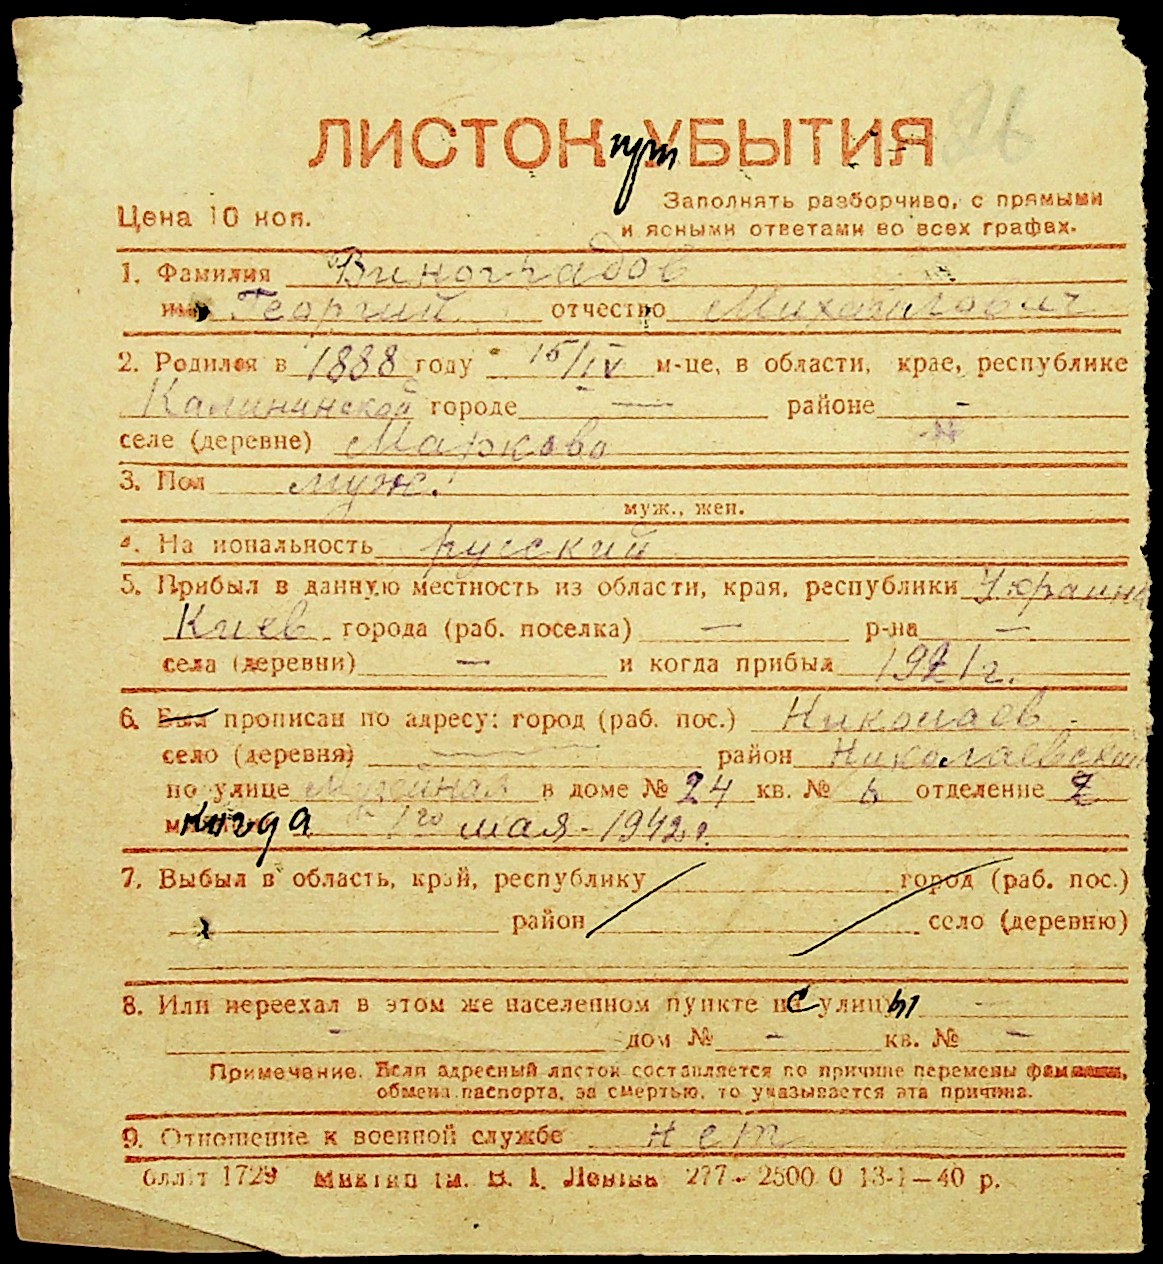 ЛИСТОК при УБЫТИЯ 26
Цена 10 коп.
Заполнять разборчиво, с прямыми
и ясными ответами во всех графах.
1. Фамилия Виноградов
имя Георгий отчество Михайлович
2. Родился в 1888 году 15/IV м-це, в области, крае, республике
Калининской городе — районе -
селе (деревне) Марково
3. Пол муж.
муж., жен.
4. На иональность русский
5. Прибыл в данную местность из области, края, республики Украина
Киев города (раб. поселка) — р-на —
села (деревни) — и когда прибыл 1921 г.
6. Был прописан по адресу: город (раб. пос.) Николаев
село (деревня) — район Николаевский
по улице в доме № 24 кв. № отделение 2
когда 1го мая - 1942 г.
7. Выбыл в область, край, республику город (раб. пос.)
район село (деревню)
8. Или переехал в этом же населенном пункте с улицы —
- дом № - кв. № -
Примечание. Если адресный листок составляется по причине перемены фамилии,
обмена паспорта, за смертью, то указывается эта причина.
9. Отношение к военной службе нет
1729 Леніна 277 - 2500 0 13-1-40 р.